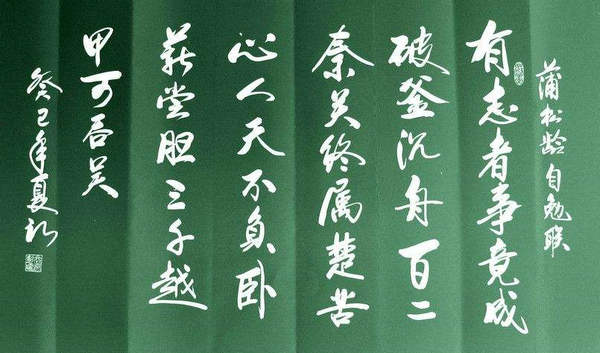 蒲松龄自勉联
有志者事竟成
破釜沉舟百二
秦关终属楚苦
心人天不负卧
薪尝胆三千越
甲可吞吴
癸巳年夏